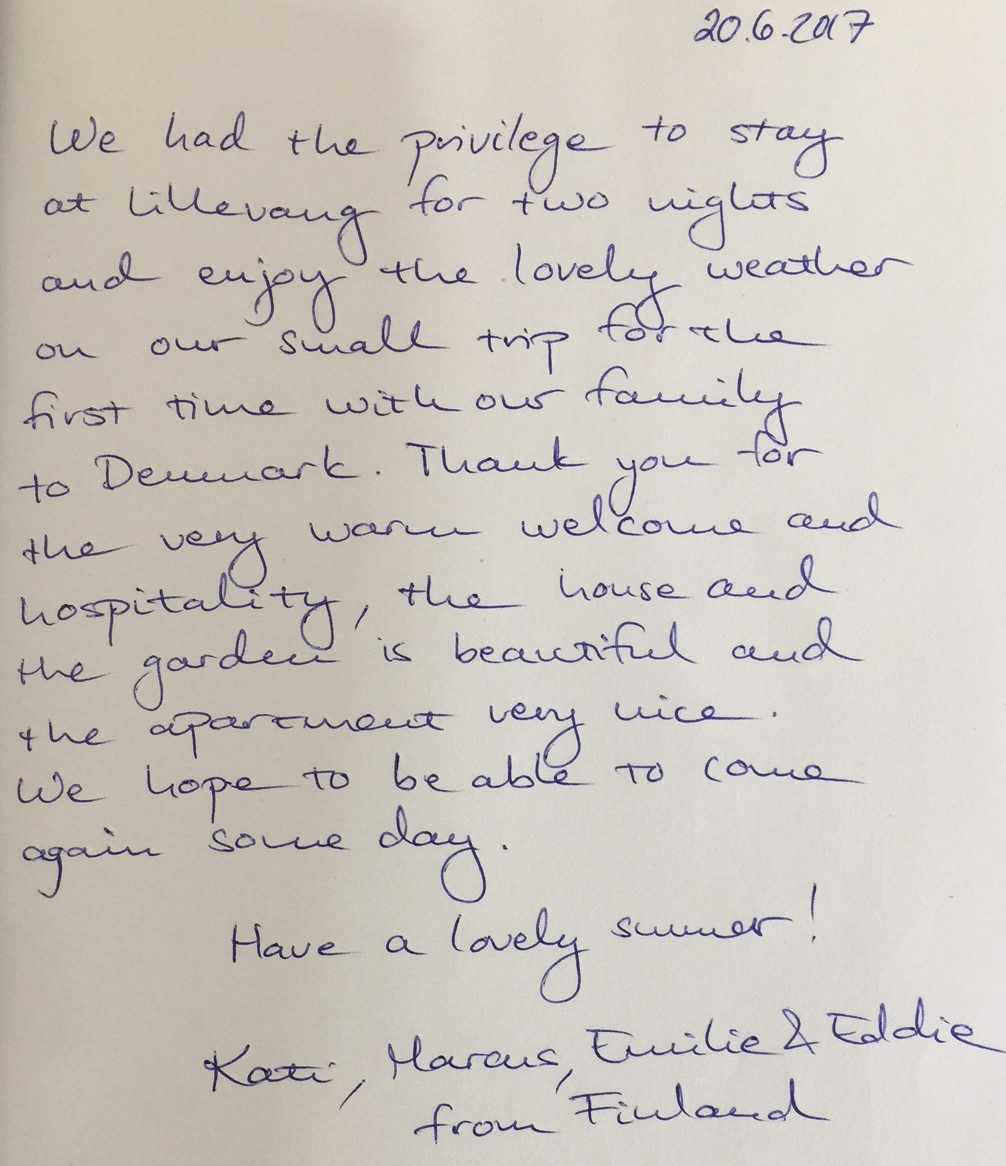 20.6.2017
We had the privilege to stay
at Lillevang for two nights
and enjoy the lovely weather
on our small trip for the
first time with our family
to Denmark. Thank you for
the very warm welcome and
hospitality, the house and
the garden is beautiful and
the apartment very nice.
We hope to be able to come
again some day.
Have a lovely summer!
Kati, Marcus, Emilie & Eddie
from Finland